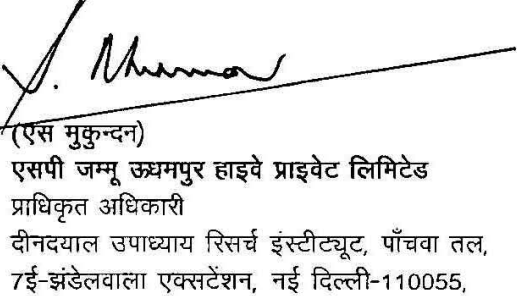 (एस मुकुन्दन)
एसपी जम्मू ऊधमपुर हाइवे प्राइवेट लिमिटेड
प्राधिकृत अधिकारी
दीनदयाल उपाध्याय रिसर्च इंस्टीट्यूट, पाँचवा तल,
7ई-झंडेलवाला एक्सटेंशन, नई दिल्ली-110055,